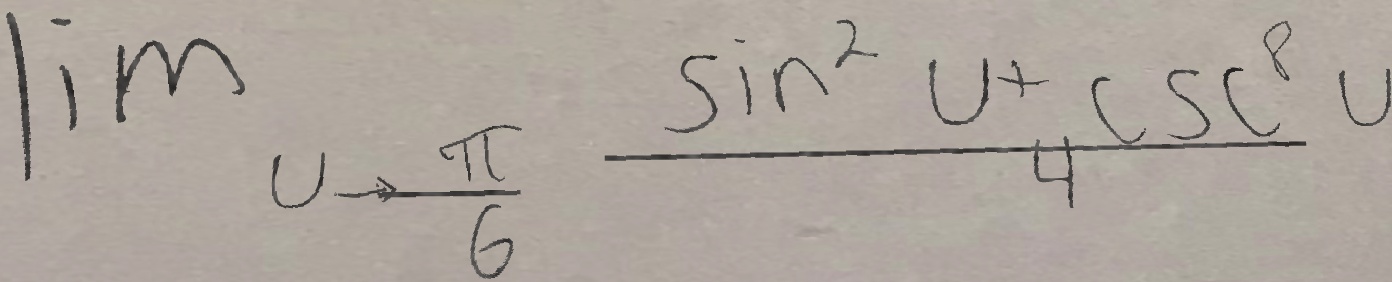 \lim_{u \to \frac{\pi}{6}} \frac{\sin^2 u + \csc^8 u}{4}